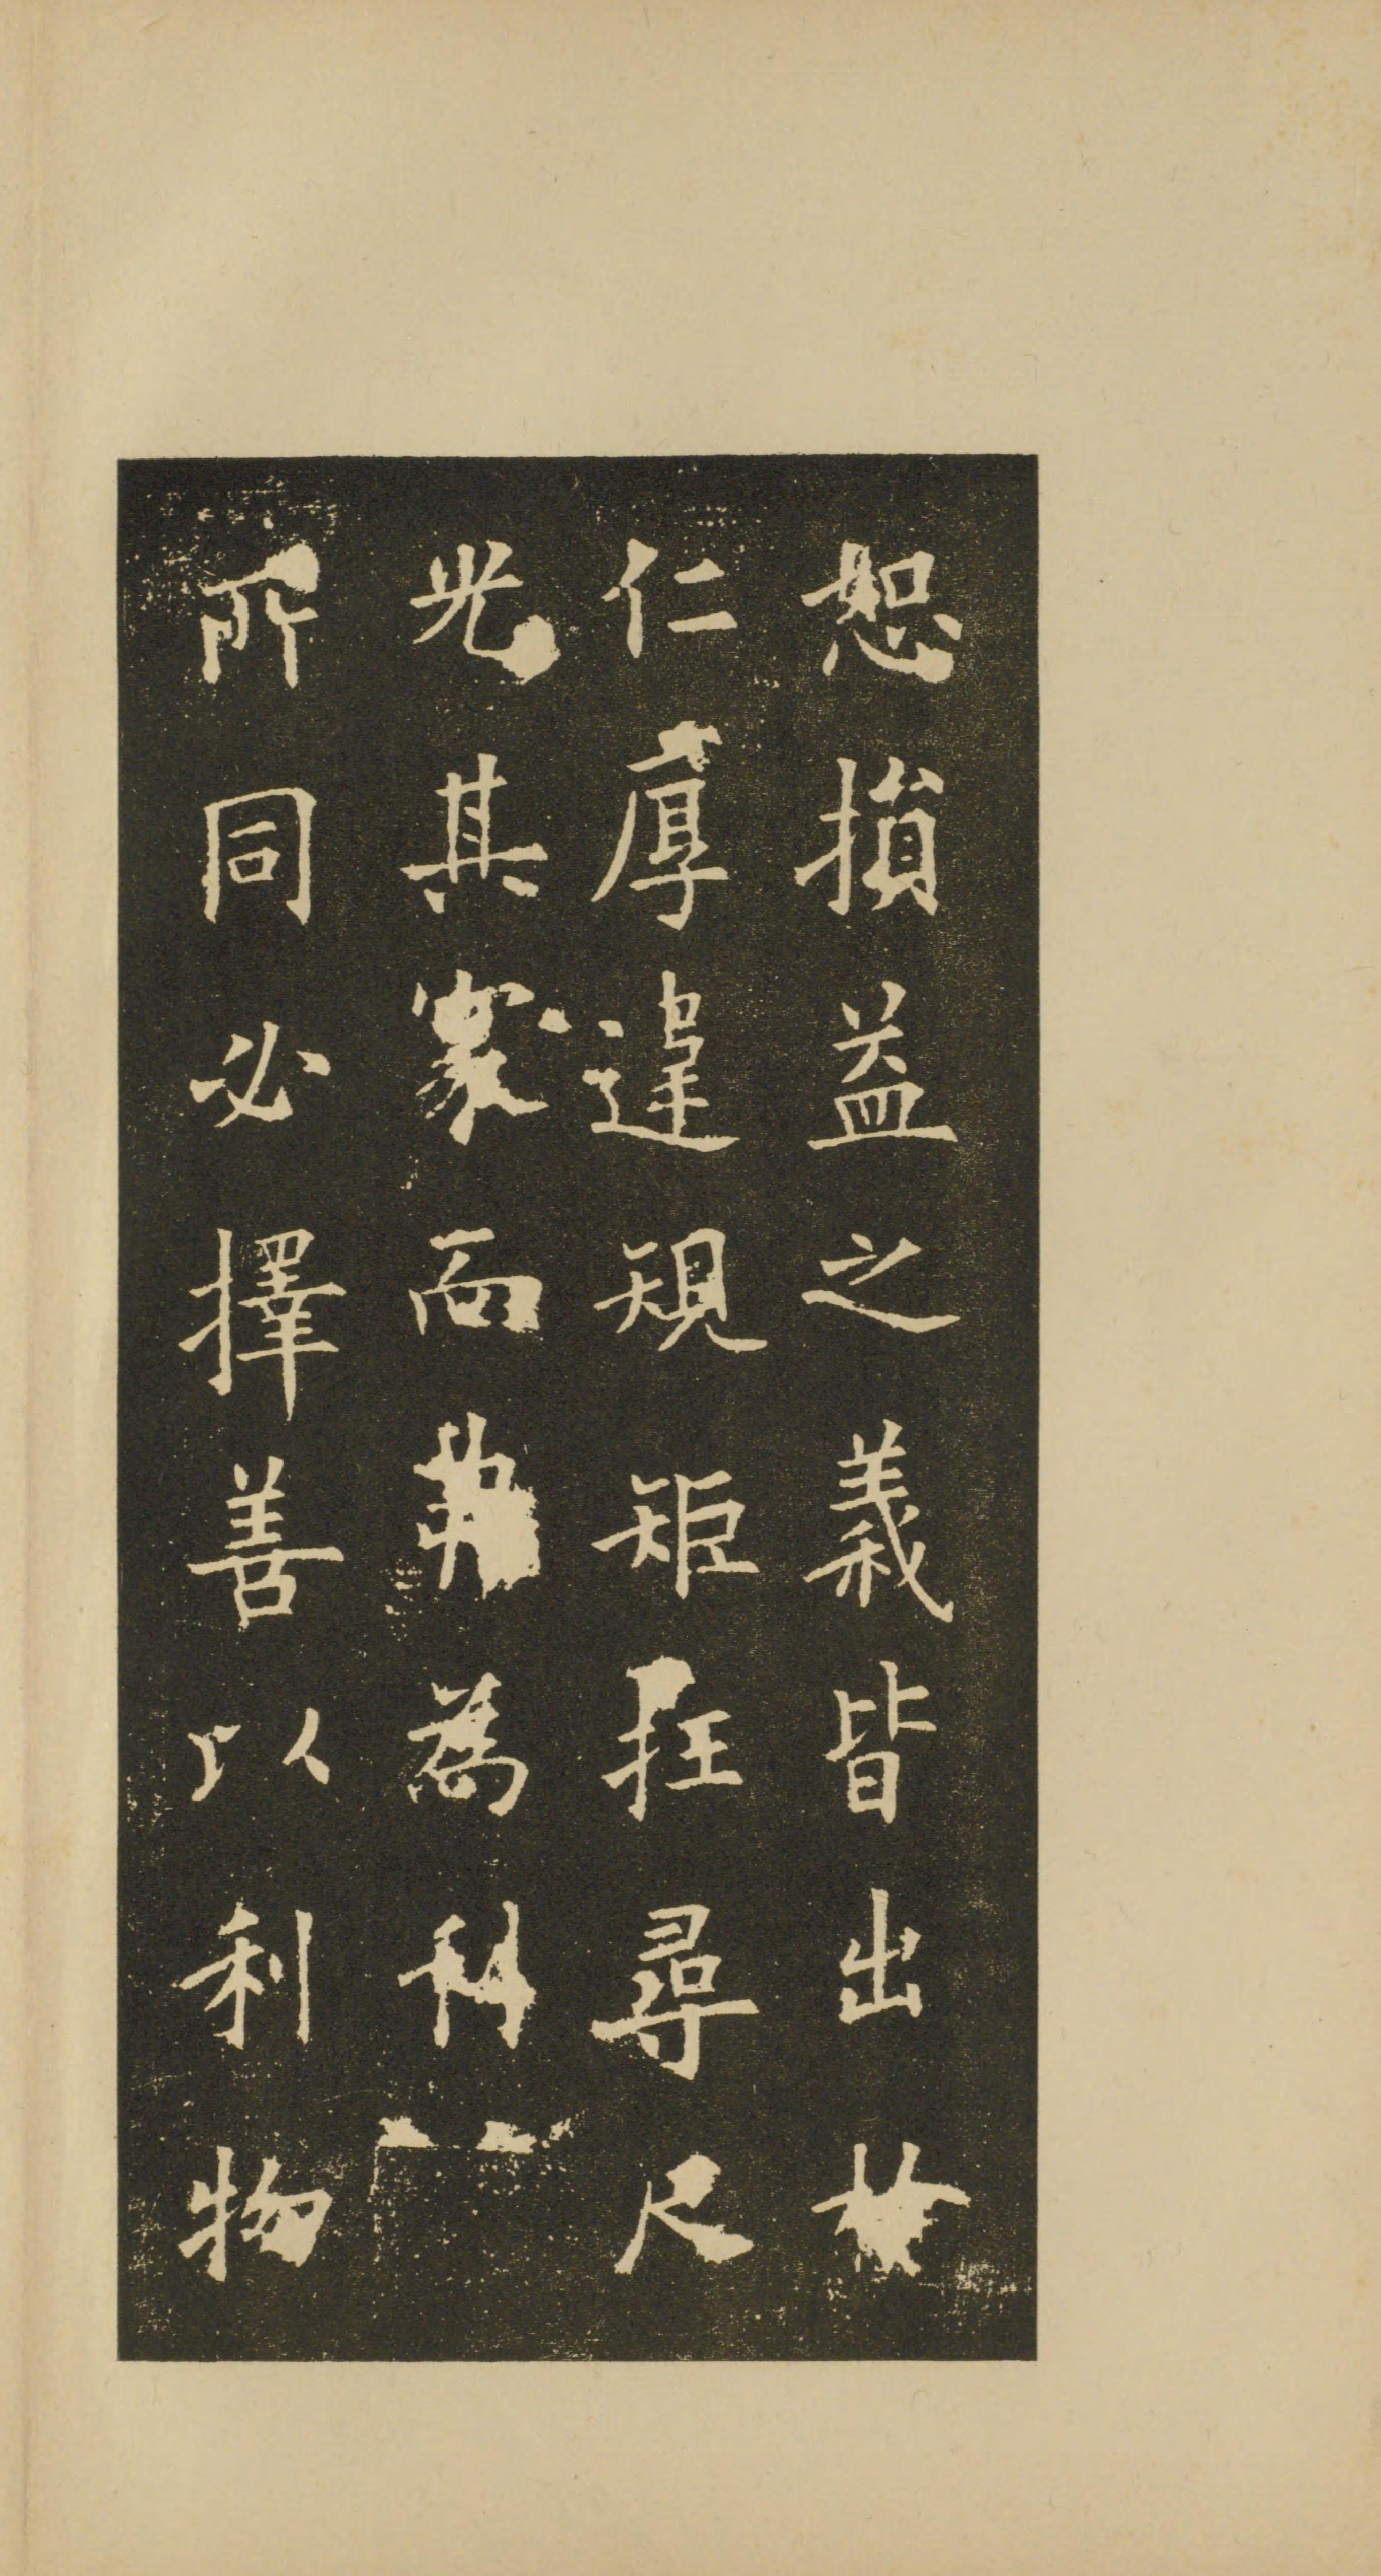 恕損益之義皆出於
仁厚違規矩抂尋尺
光其家而為科
所同必擇善以利物